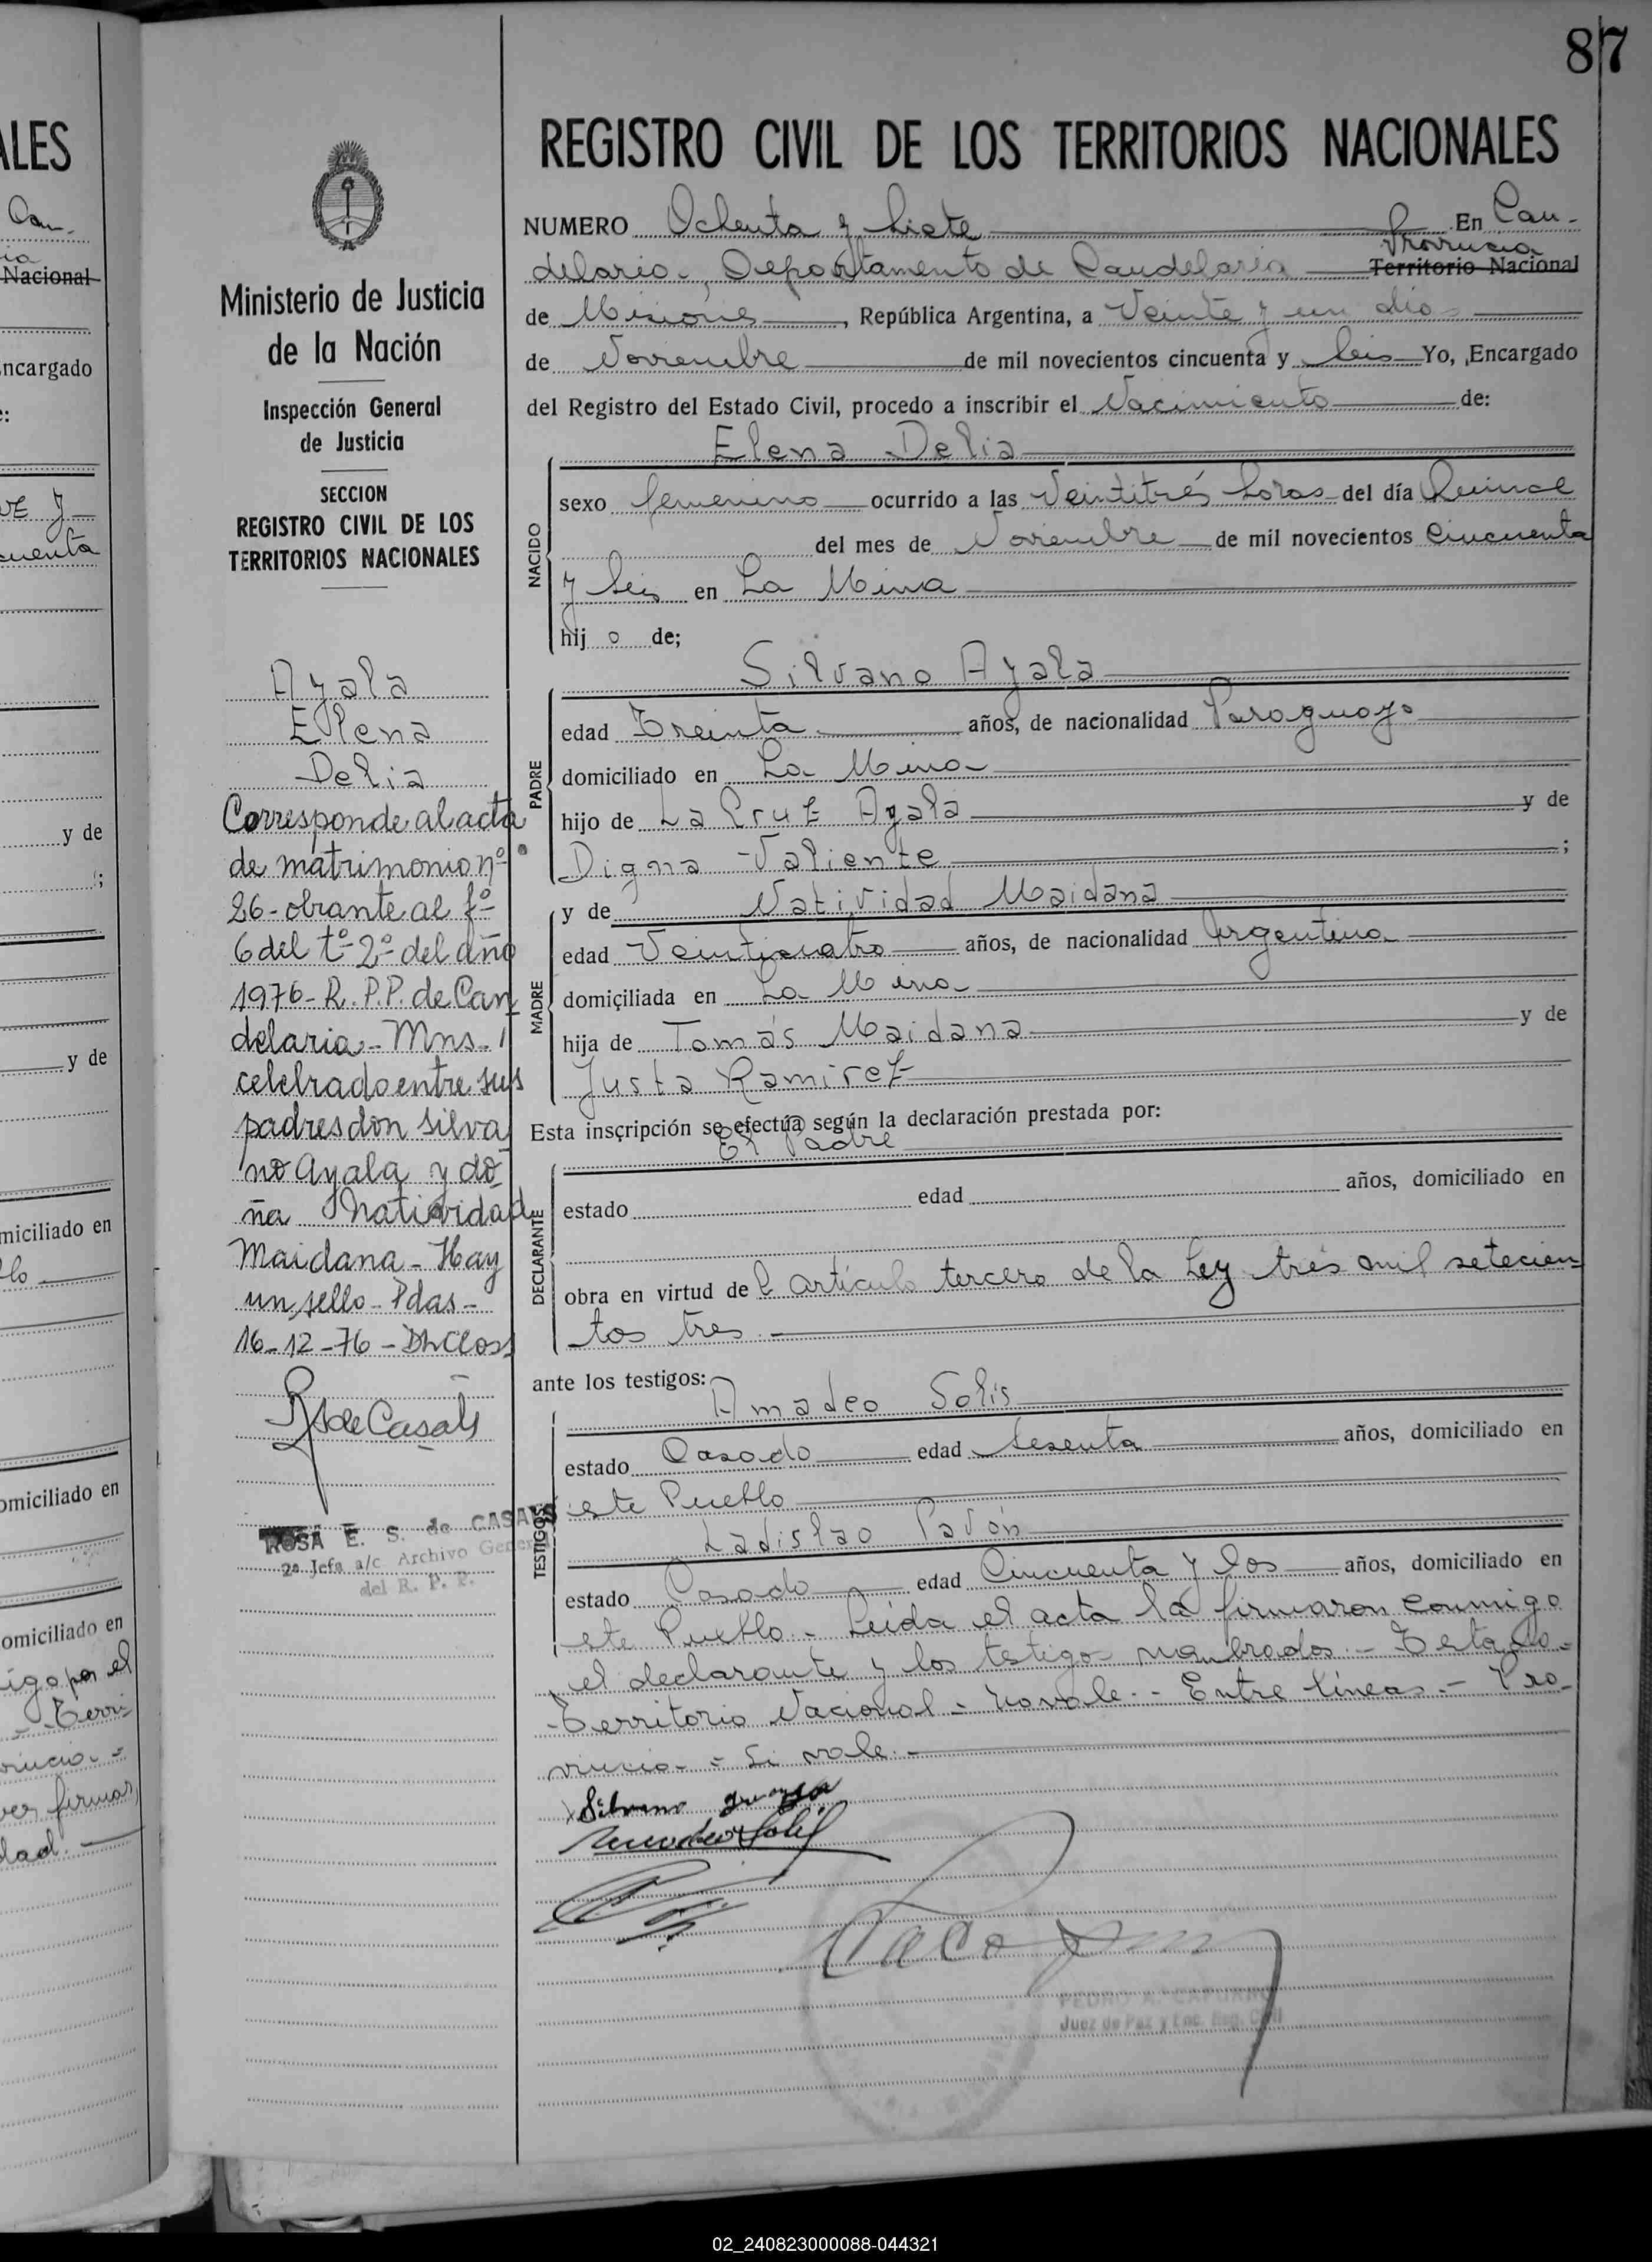 87
REGISTRO CIVIL DE LOS TERRITORIOS NACIONALES
NUMERO Ochenta y Siete En Can-
Provincia
delaria, Departamento de Candelaria Territorio Nacional
de Misiones, República Argentina, a Veinte y un dias
de Noviembre de mil novecientos cincuenta y Seis Yo, Encargado
del Registro del Estado Civil, procedo a inscribir el Nacimiento de:
Elena Delia
NACIDO
sexo femenino ocurrido a las Veintitrés horas del día Quince
del mes de Noviembre de mil novecientos Cincuenta
y Seis en La Mina
hij o de;
Silvano Ayala
PADRE
edad Treinta años, de nacionalidad Paraguayo
domiciliado en La Mina
hijo de La Cruz Ayala y de
Digna Valiente ;
y de Natividad Maidana
MADRE
edad Veinticuatro años, de nacionalidad Argentina
domiciliada en La Mina
hija de Tomás Maidana y de
Justa Ramirez
Esta inscripción se efectúa según la declaración prestada por:
El Padre
DECLARANTE
estado edad años, domiciliado en
obra en virtud de l artículo tercero de la Ley tres mil setecien
tos tres.-
ante los testigos:
Amadeo Solis
TESTIGOS
estado Casado edad Sesenta años, domiciliado en
este Pueblo
Ladislao Pavón
estado Casado edad Cincuenta y dos años, domiciliado en
este Pueblo.- Leida el acta la firmaron conmigo
el declarante y los testigos nombrados.- Testado-
Territorio Nacional - no vale.- Entre líneas.- Pro-
vincia - Si vale.-
Silvano
Juez de Paz y Enc. Reg. Civil
Ministerio de Justicia
de la Nación
Inspección General
de Justicia
SECCION
REGISTRO CIVIL DE LOS
TERRITORIOS NACIONALES
Ayala
Elena
Delia
Corresponde al acta
de matrimonio nº
26- obrante al fº
6 del tº 2º del año
1976- R.P.P. de Can
delaria- Mns.
celebrado entre sus
padres don Silva
no Ayala y do
ña Natividad
Maidana- Hay
un sello- Pdas-
16-12-76-
R S de Casals
ROSA E. S. de CASALS
2ª Jefa a/c Archivo General
del R. P. P.
ALES
Can-
Nacional
ncargado
cuenta
y de
y de
miciliado en
omiciliado en
omiciliado en
igo por el
firmas
dad.
02_240823000088-044321